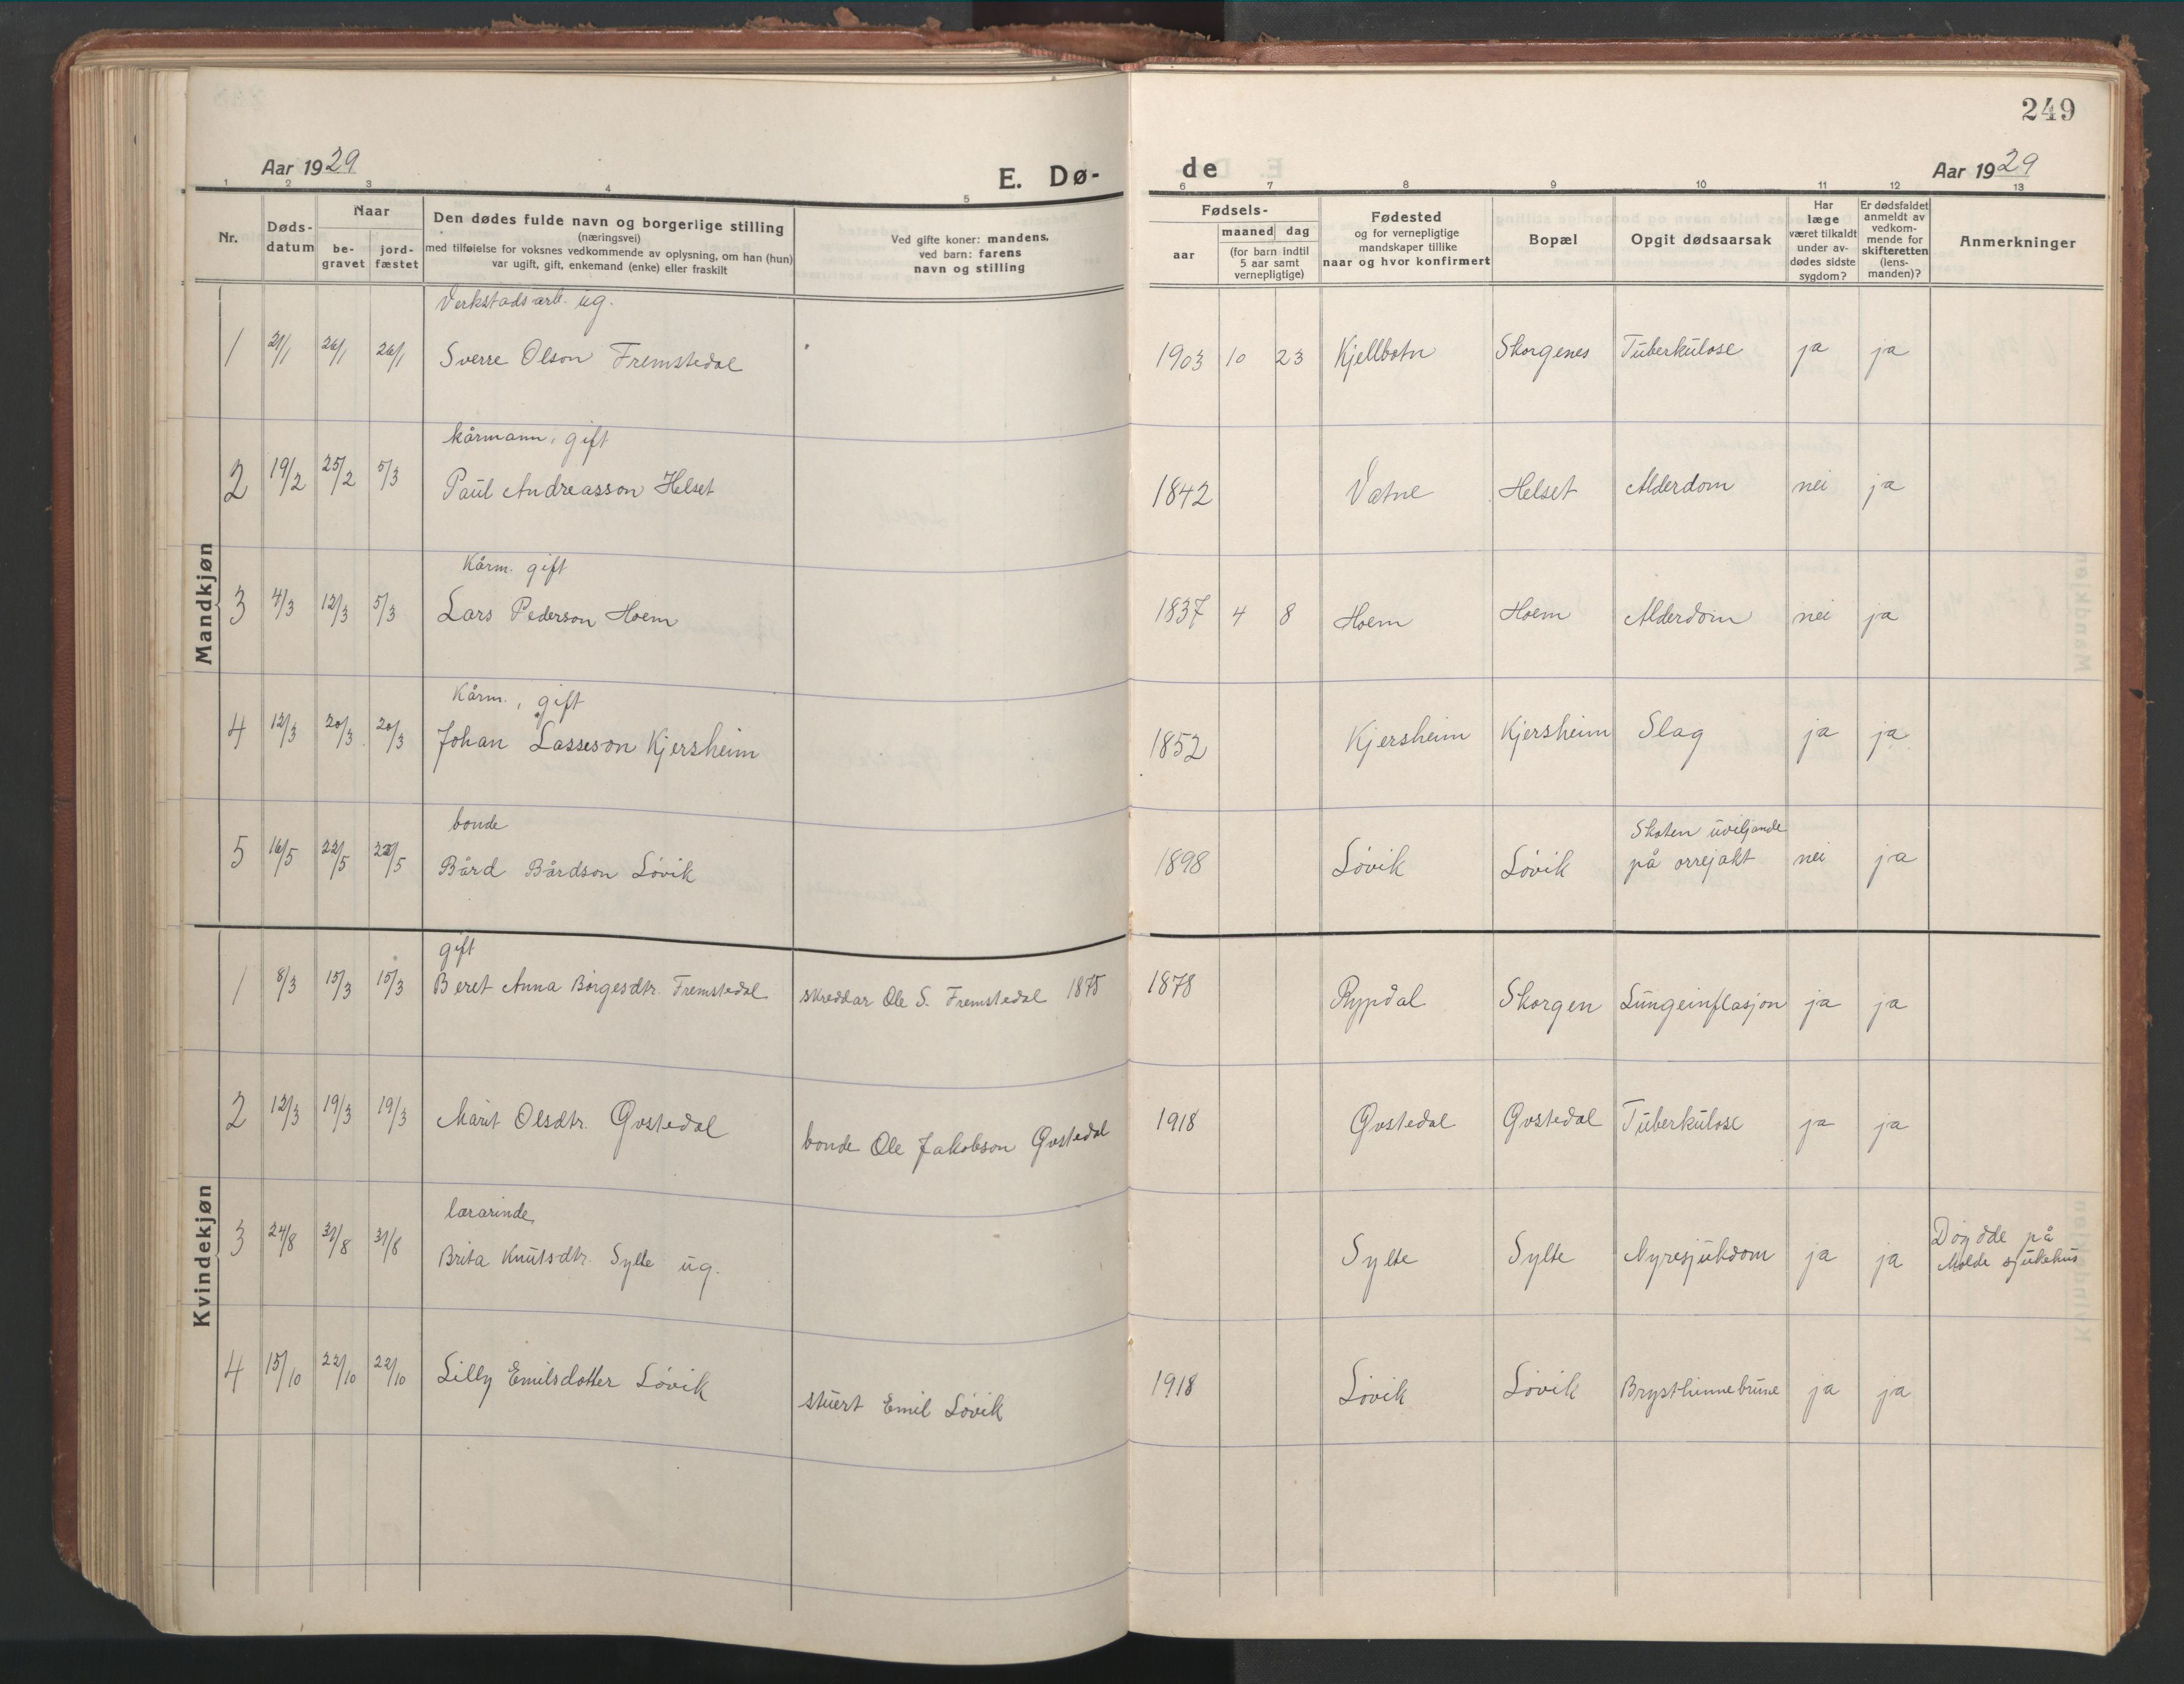 249
Aar 1929
E. Dø-
de
Aar 1929
1 2 3 4 5 6 7 8 9 10 11 12 13
Nr.
Døds-
datum
Naar
be-
gravet
jord-
fæstet
Den dødes fulde navn og borgerlige stilling
(næringsvei)
med tilføielse for voksnes vedkommende av oplysning, om han (hun)
var ugift, gift, enkemand (enke) eller fraskilt
Ved gifte koner: mandens,
ved barn: farens
navn og stilling
Fødsels-
aar
maaned dag
(for barn indtil
5 aar samt
vernepligtige)
Fødested
og for vernepligtige
mandskaper tillike
naar og hvor konfirmert
Bopæl
Opgit dødsaarsak
Har
læge
været tilkaldt
under av-
dødes sidste
sygdom?
Er dødsfaldet
anmeldt av
vedkom-
mende for
skifteretten
(lens-
manden)?
Anmerkninger
Mandkjøn
Verkstadsarb. ug.
1 21/1 26/1 26/1 Sverre Olson Fremstedal 1903 10 23 Kjellbotn Skorgenes Tuberkulose ja ja
kårmann, gift
2 19/2 25/2 5/3 Paul Andreasson Helset 1842 Vatne Helset Alderdom nei ja
Kårm. gift
3 4/3 12/3 5/3 Lars Pederson Hoem 1837 4 8 Hoem Hoem Alderdom nei ja
Kårm., gift
4 12/3 20/3 20/3 Johan Lasseson Kjersheim 1852 Kjersheim Kjersheim Slag ja ja
bonde Skoten uviljande
5 16/5 22/5 22/5 Bård Bårdson Lövik 1898 Lövik Lövik på orrejakt nei ja
Kvindekjøn
gift
1 8/3 15/3 15/3 Beret Anna Börgesdtr. Fremstedal skreddar Ole S. Fremstedal 1875 1878 Rypdal Skorgen Lungeinflasjon ja ja
2 12/3 19/3 19/3 Marit Olsdtr. Gvstedal bonde Ole Jakobson Gvstedal 1918 Gvstedal Gvstedal Tuberkulose ja ja
lærarinde
3 24/8 31/8 31/8 Brita Knutsdtr. Sylte ug. Sylte Sylte Nyresjukdom ja ja Döydde på
Molde sjukehus
4 15/10 22/10 22/10 Lilly Emilsdotter Lövik stuert Emil Lövik 1918 Lövik Lövik Brysthinnebrune ja ja